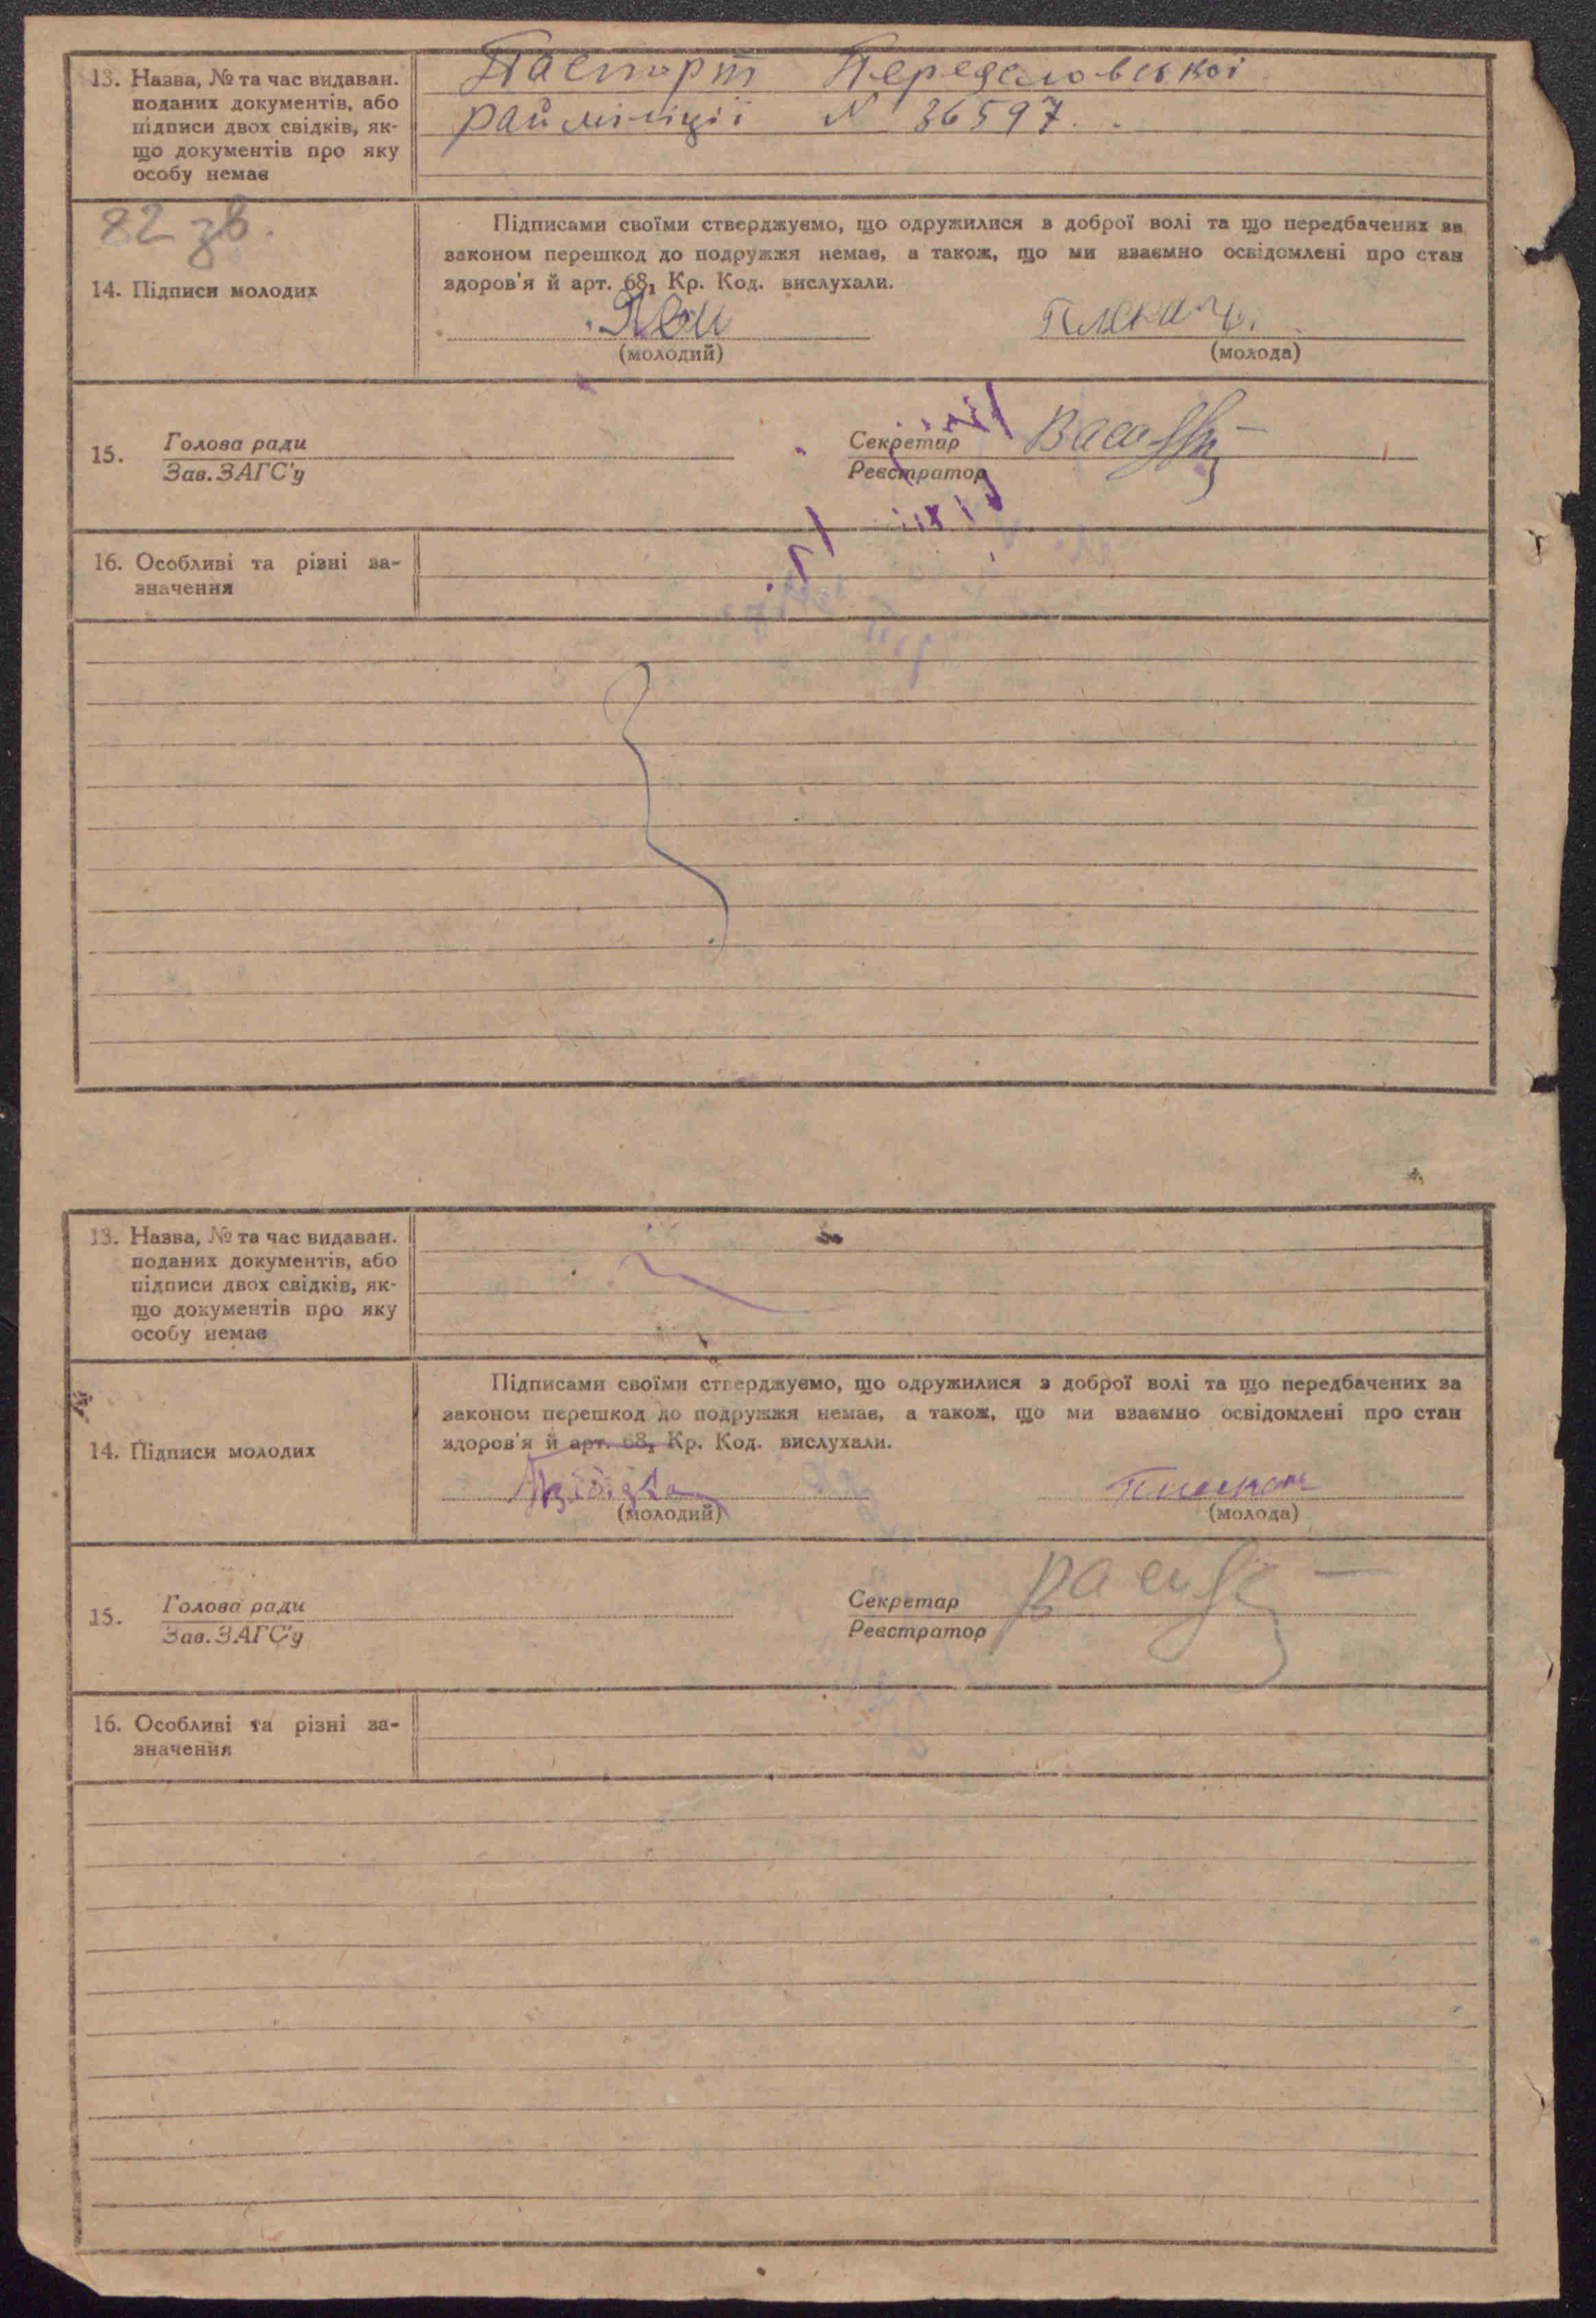 13. Назва, № та час видаван.
поданих документів, або
підписи двох свідків, як-
що документів про яку
особу немає
Паспорт
райміліції N 36597.
82 зв.
14. Підписи молодих
Підписами своїми стверджуємо, що одружилися з доброї волі та що передбачених за
законом перешкод до подружжя немає, а також, що ми взаємно освідомлені про стан
здоров'я й арт. 68₁ Кр. Код. вислухали.
(молодий)
(молода)
15.
Голова ради
Зав. ЗАГС'у
Секретар
Реєстратор
16. Особливі та різні за-
значення
13. Назва, № та час видаван.
поданих документів, або
підписи двох свідків, як-
що документів про яку
особу немає
14. Підписи молодих
Підписами своїми стверджуємо, що одружилися з доброї волі та що передбачених за
законом перешкод до подружжя немає, а також, що ми взаємно освідомлені про стан
здоров'я й арт. 68₁ Кр. Код. вислухали.
(молодий)
(молода)
15.
Голова ради
Зав. ЗАГС'у
Секретар
Реєстратор
16. Особливі та різні за-
значення